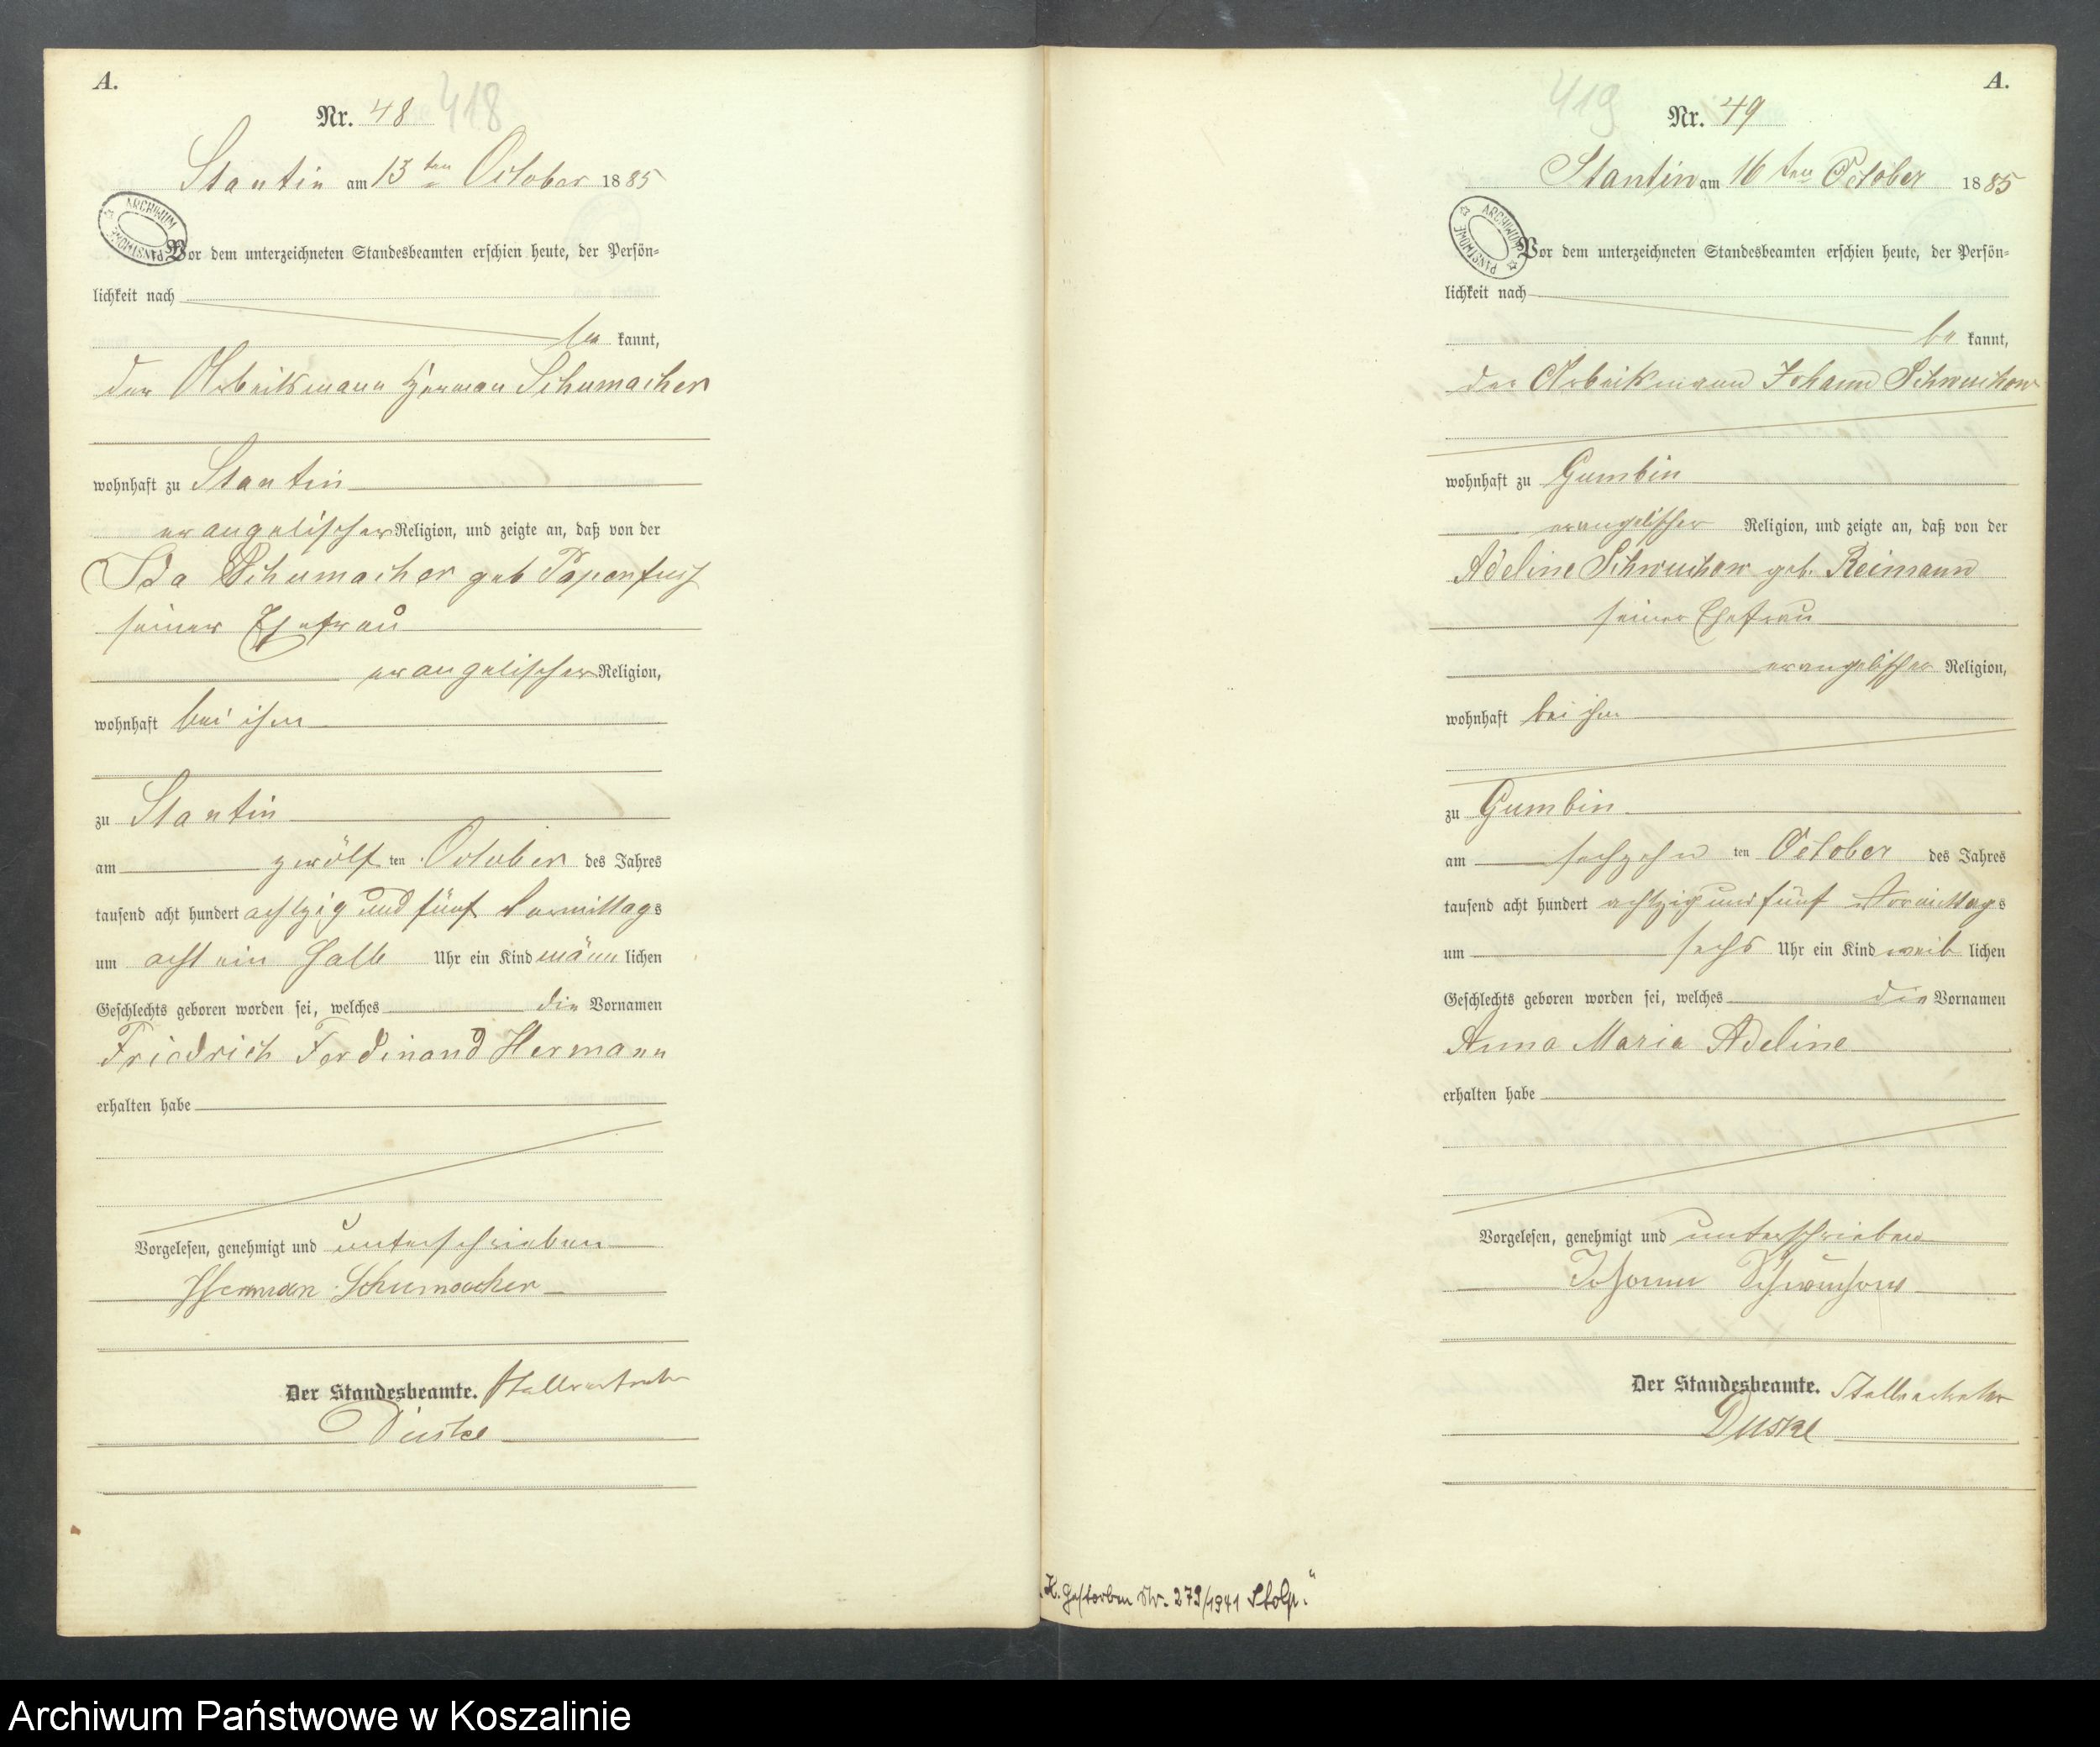 A.
Nr. 48 418
Stantin am 13ten October 1885
ARCHIWUM PAŃSTWOWE
Vor dem unterzeichneten Standesbeamten erschien heute, der Persön-
lichkeit nach
be kannt,
der Arbeitsmann Herman Schumacher
wohnhaft zu Stantin
evangelischer Religion, und zeigte an, daß von der
Ida Schumacher geb Papenfuss
seiner Ehefrau
evangelischer Religion,
wohnhaft bei ihm
zu Stantin
am zwölf ten October des Jahres
tausend acht hundert achtzig und fünf Vormittags
um acht ein halb Uhr ein Kind männ lichen
Geschlechts geboren worden sei, welches die Vornamen
Friedrich Ferdinand Hermann
erhalten habe
Vorgelesen, genehmigt und unterschrieben
Herman Schumacher
Der Standesbeamte. Stellvertreter
Duske
A.
419 Nr. 49
Stantin am 16ten October 1885
ARCHIWUM PAŃSTWOWE
Vor dem unterzeichneten Standesbeamten erschien heute, der Persön-
lichkeit nach
be kannt,
der Arbeitsmann Johann Schwuchow
wohnhaft zu Gumbin
evangelischer Religion, und zeigte an, daß von der
Adeline Schwuchow geb. Reimann
seiner Ehefrau
evangelischer Religion,
wohnhaft bei ihm
zu Gumbin
am sechzehn ten October des Jahres
tausend acht hundert achtzig und fünf Vormittags
um sechs Uhr ein Kind weib lichen
Geschlechts geboren worden sei, welches die Vornamen
Anna Maria Adeline
erhalten habe
Vorgelesen, genehmigt und unterschrieben
Johann Schwuchow
Der Standesbeamte. Stellvertreter
Duske
K. gestorben Nr. 279/1941 Stolp."
Archiwum Państwowe w Koszalinie